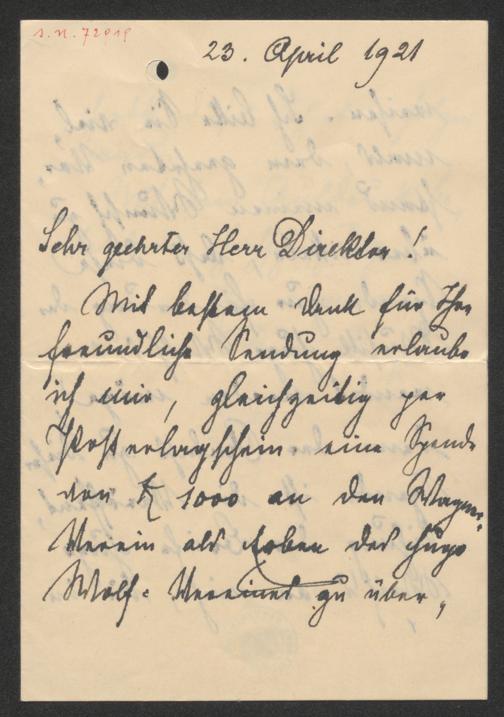 I.N. 72019
23. April 1921
Sehr geehrter Herr Direktor!
Mit bestem Dank für Ihre
freundliche Sendung erlaube
ich mir, gleichzeitig per
Posterlagschein eine Spende
von K 1000 an den Wagner-
Verein als Erben des Hugo
Wolf-Vereines zu über-